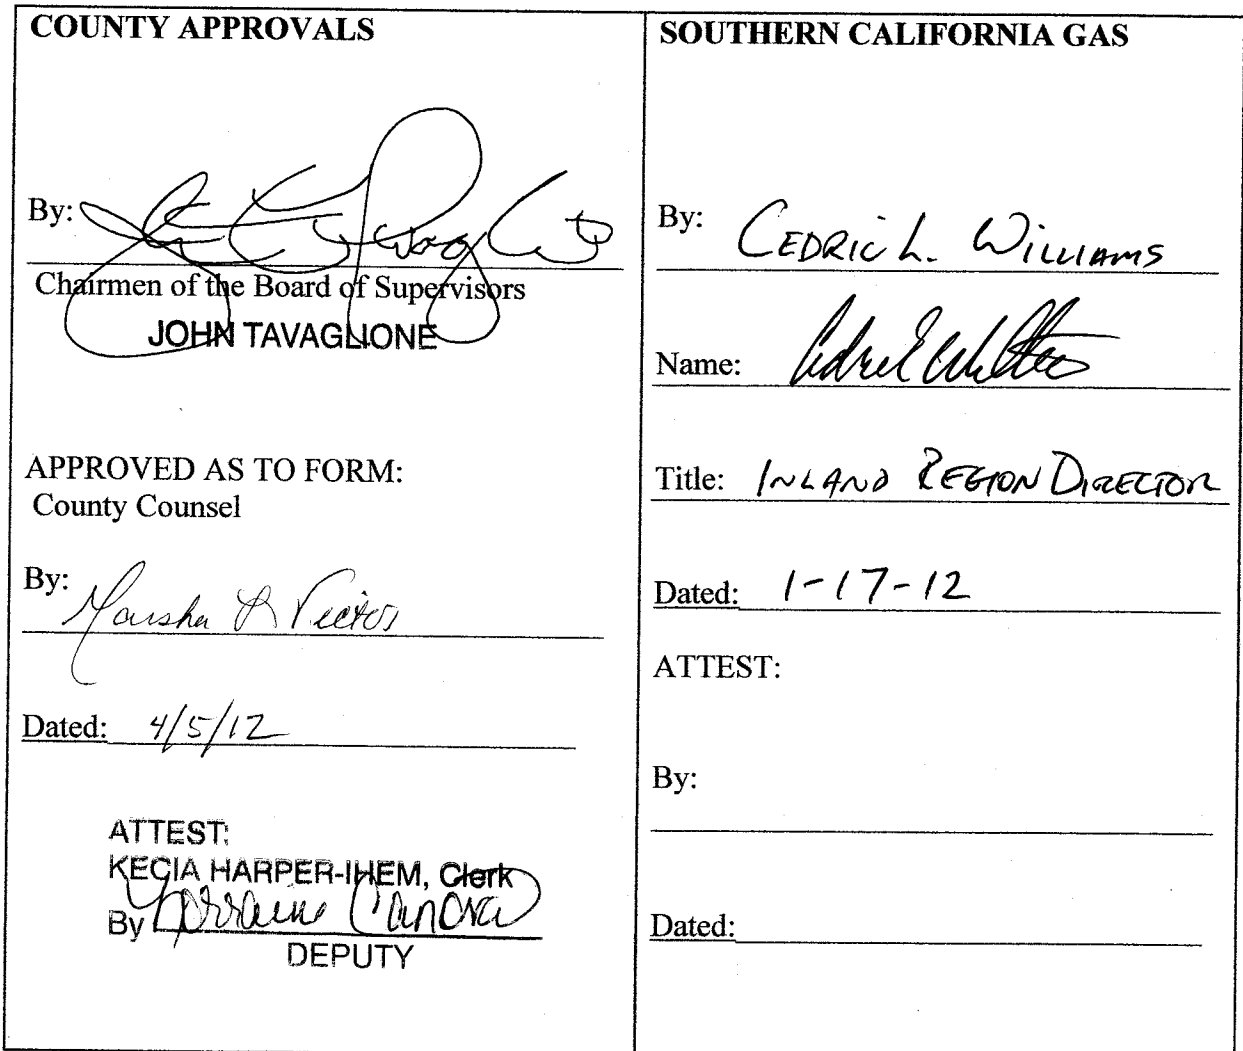 COUNTY APPROVALS
By:
Chairmen of the Board of Supervisors
JOHN TAVAGLIONE
APPROVED AS TO FORM:
County Counsel
By: Marsha L Victor
Dated: 4/5/12
ATTEST:
KECIA HARPER-IHEM, Clerk
By
DEPUTY
SOUTHERN CALIFORNIA GAS
By: CEDRIC L. WILLIAMS
Name:
Title: INLAND REGION DIRECTOR
Dated: 1-17-12
ATTEST:
By:
Dated: